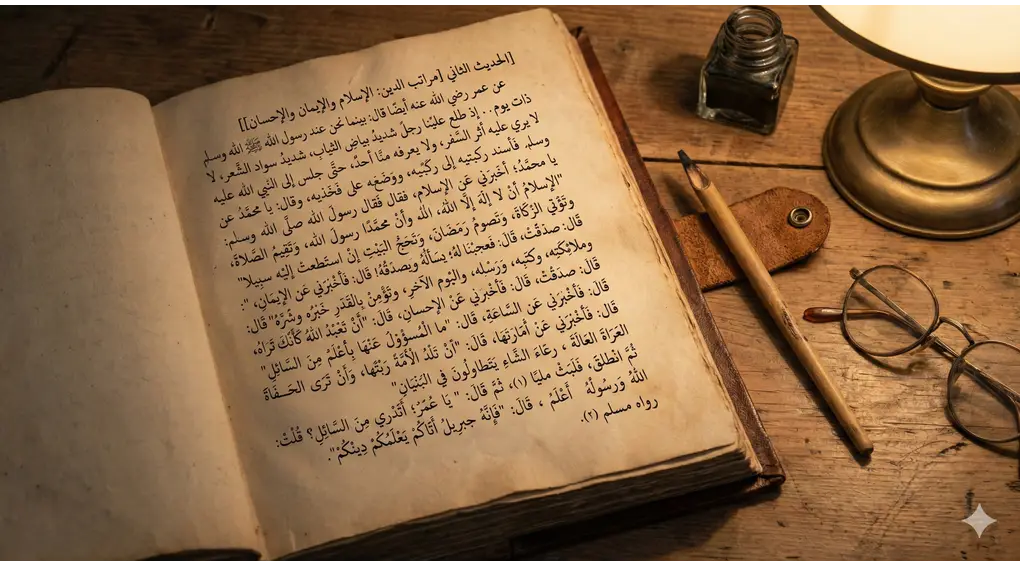 [الحديث الثاني [مراتب الدين: الإسلام والإيمان والإحسان]]
عن عمر رضي الله عنه أيضًا قال: بينما نحن عند رسول الله ﷺ الله وسلم
ذات يوم.. إذ طلع علينا رجلٌ شديدُ بياضِ الثياب، شديدُ سواد الشَّعر، لا
لا يرى عليه أثر السَّفر، ولا يعرفه منَّا أحدٌ، حتَّى جلس إلى النَّبي الله عليه
وسلم. فأسند ركبتيه إلى ركبَتَيه، ووَضَعَ على فَخذيه، وقال: يا محمَّدُ عن
يا محمَّد؛ أخبَرني عَن الإسلام، فقال فَقال رسولَ الله صلَّى الله وسلم:
"الإسلامُ أنْ لا إلهَ إلَّا الله، الله وأنْ محمَّدًا رسولَ الله، وَتَقيمُ الصَّلاةَ،
وتَؤتي الزَّكاةَ، وَتَصومُ رَمَضان، وَتَحَجُ البَيْتِ إنْ استَطَعتَ إليْه سبيلا"
قَال: صدَقتْ، قَال: فعَجبْنا لهُ؛ يسألَهُ ويَصدّقُه! قال: فَأخبَرني عَن الإيمَانِ، ".
وملائِكتِه، وكتَبِه، ورَسُلِه، واليَوم الآخرِ، وتَؤمِنَ بِالقَدَرِ خَيرُه وشَرَّهُ" قَال:
قَال: صدَقتْ، قال: فَأخبَرني عَنْ الإحسانِ، قَال: "أنْ تَعَبُدَ اللهُ كَأنَكَ تَرَاه،
قَال: فَأخبَرني عَن السَّاعَة، قَال: "ما الْمسؤؤلَ عَنْها بِأعْلَمُ مِنَ السَّائِلِ"
قَال: فَأخبَرني عَنْ أمَارَتهَا، قَال: "أنْ تَلَدُ الأمَّةُ رَبَّتها، وَأنْ تَرَى الحَفَاةَ
العَرَاةَ العَالَةَ، رعَاءَ الشَّاءِ يَتَطاولُونَ في البَنيَانِ"
ثُمَّ انْطلَقَ، فَلبَثْ مليًّا (١)، ثُمَّ قَالَ: " يَا عُمَرُ؛ أتَدْري مِنَ السَّائِلِ؟ قُلتْ:
اللهُ وَرَسُولُهُ أعْلَمُ، قَالَ: "فَإنَّهُ جبريلُ أتَاكُمْ يَعْلَمُكُمْ دِينَكُمْ".
رواه مسلم (٢).